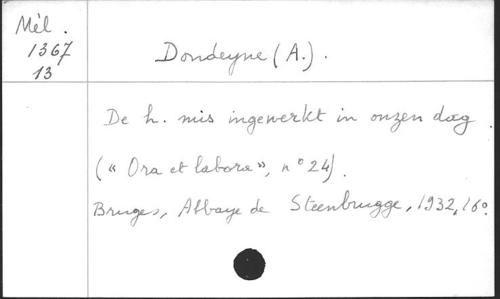 Mél.
1367
13
Dondeyne (A.).
De h. mis ingewerkt in onzen dag
(« Ora et labora », n° 24).
Bruges, Abbaye de Steenbrugge, 1932, 16°.